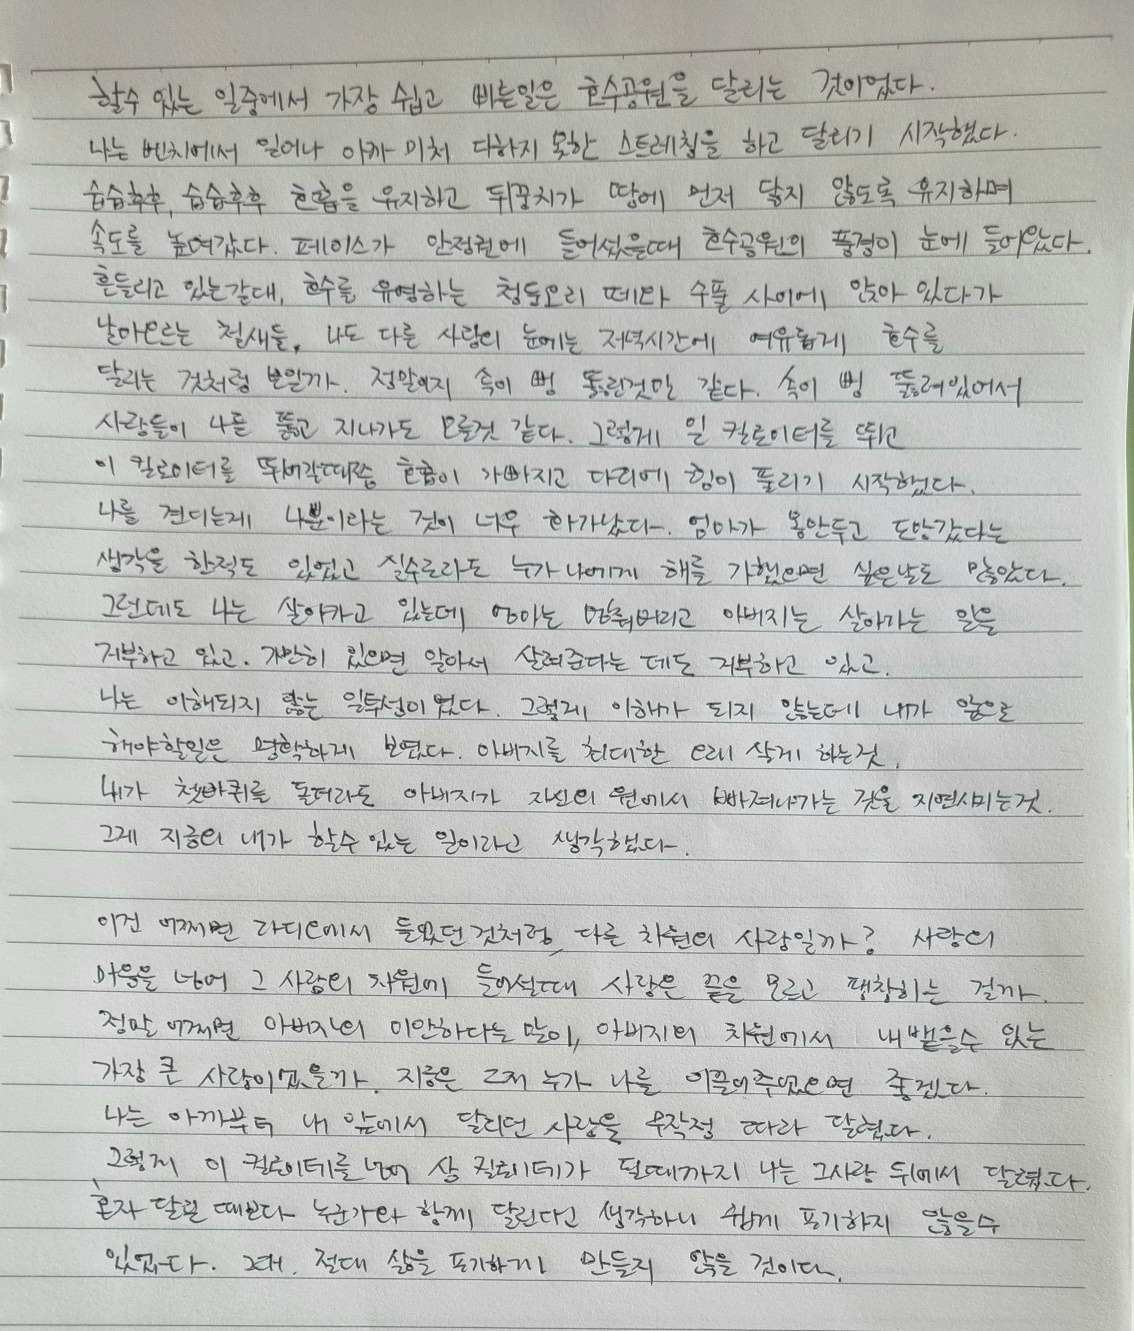 할수 있는 일중에서 가장 쉽고 빠른일은 호수공원을 달리는 것이었다.
나는 벤치에서 일어나 아까 미처 다하지 못한 스트레칭을 하고 달리기 시작했다.
습습후후, 습습후후 호흡을 유지하고 뒤꿈치가 땅에 먼저 닿지 않도록 유지하며
속도를 높여갔다. 페이스가 안정권에 들어섰을때 호수공원의 풍경이 눈에 들어왔다.
흔들리고 있는갈대, 호수를 유영하는 청둥오리 떼와 수풀 사이에 앉아 있다가
날아오르는 철새들, 나도 다른 사람의 눈에는 저녁시간에 여유롭게 호수를
달리는 것처럼 보일까. 정말이지 속이 뻥 뚫린것만 같다. 속이 뻥 뚫려있어서
사람들이 나를 뚫고 지나가도 모를것 같다. 그렇게 일 킬로미터를 뛰고
이 킬로미터를 뛰어갈때쯤 호흡이 가빠지고 다리에 힘이 풀리기 시작했다.
나를 견디는게 나뿐이라는 것이 너무 화가났다. 엄마가 몽안두고 도망갔다는
생각을 한적도 있었고 실수로라도 누가 나에게 해를 가했으면 싶은날도 많았다.
그런데도 나는 살아가고 있는데 엄마는 멈춰버리고 아버지는 살아가는 일을
거부하고 있고. 가만히 있으면 알아서 살려준다는 데도 거부하고 있고.
나는 이해되지 않는 일투성이였다. 그렇게 이해가 되지 않는데 내가 앞으로
해야할일은 명확하게 보였다. 아버지를 최대한 오래 살게 하는것.
내가 쳇바퀴를 돌더라도 아버지가 자신의 원에서 빠져나가는 것을 지연시키는것.
그게 지금의 내가 할수 있는 일이라고 생각했다.
이건 어쩌면 라디오에서 들었던 것처럼 다른 차원의 사랑일까? 사랑의
마음을 넘어 그 사람의 차원에 들어설때 사랑은 끝을 모르고 팽창하는 걸까.
정말 어쩌면 아버지의 미안하다는 말이, 아버지의 차원에서 내뱉을수 있는
가장 큰 사랑이었을까. 지금은 그저 누가 나를 이끌어주었으면 좋겠다.
나는 아까부터 내 앞에서 달리던 사람을 무작정 따라 달렸다.
그렇게 이 킬로미터를 넘어 삼 킬로미터가 될때까지 나는 그사람 뒤에서 달렸다.
혼자 달릴 때보다 누군가와 함께 달린다고 생각하니 쉽게 포기하지 않을수
있었다. 그래. 절대 삶을 포기하게 만들지 않을 것이다.